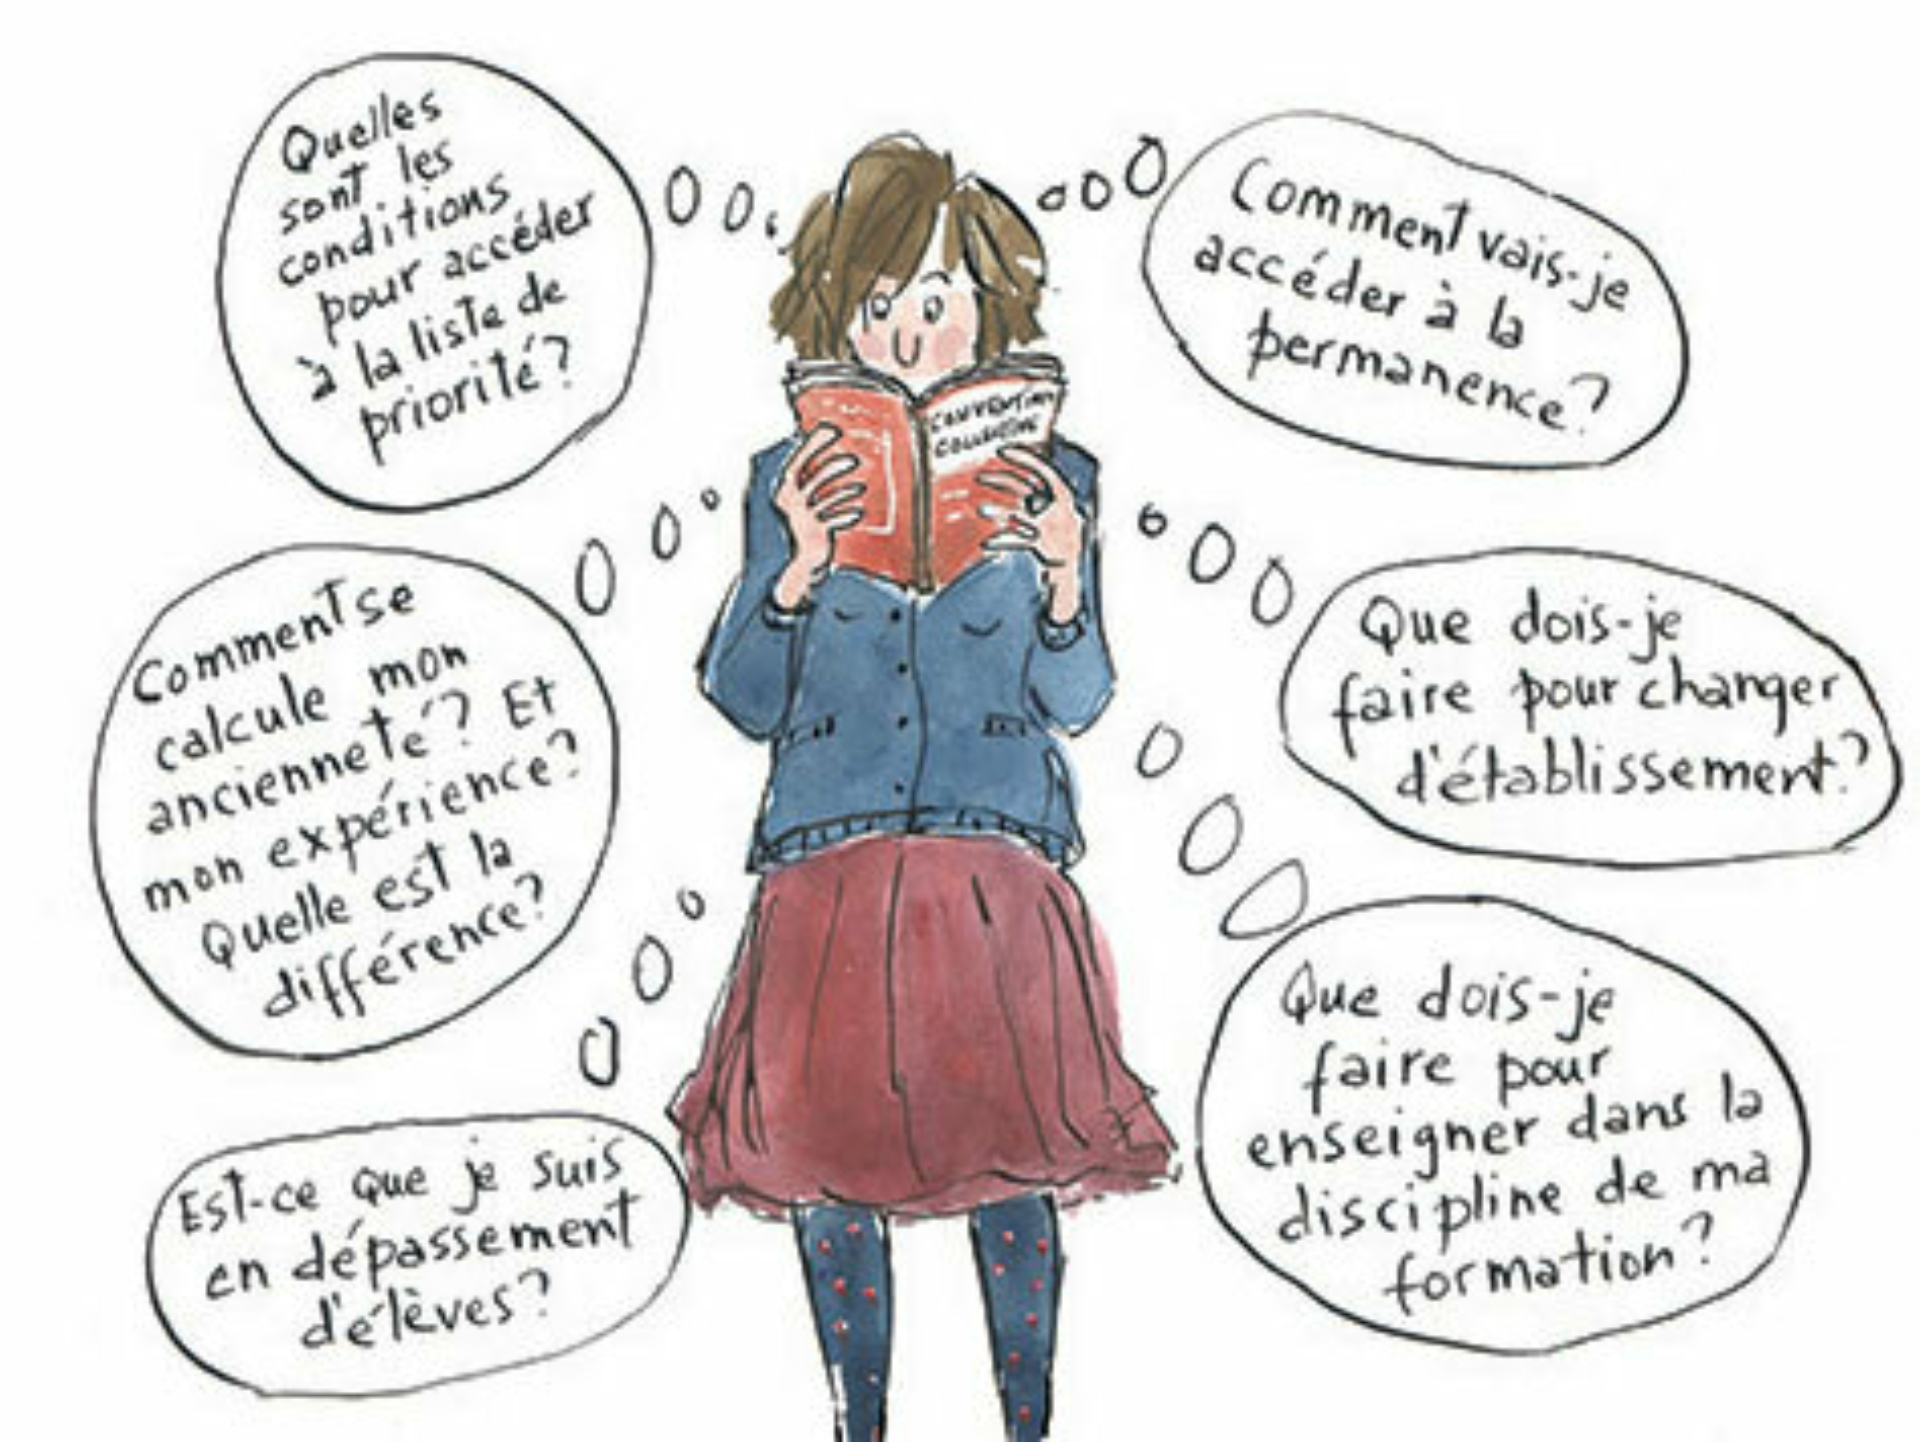 Quelles
sont les
conditions
pour accéder
à la liste de
priorité?
Comment vais-je
accéder à la
permanence?
CONVENTION
COLLECTIVE
Comment se
calcule mon
ancienneté? Et
mon expérience?
Quelle est la
différence?
Que dois-je
faire pour changer
d'établissement?
Est-ce que je suis
en dépassement
d'élèves?
Que dois-je
faire pour
enseigner dans la
discipline de ma
formation?